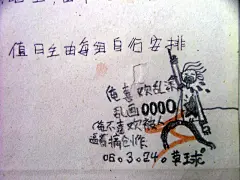 值日生由每组自行安排
俺喜欢乱涂
乱画0000
俺不喜欢被人
逼着搞创作
08.3.24.草球